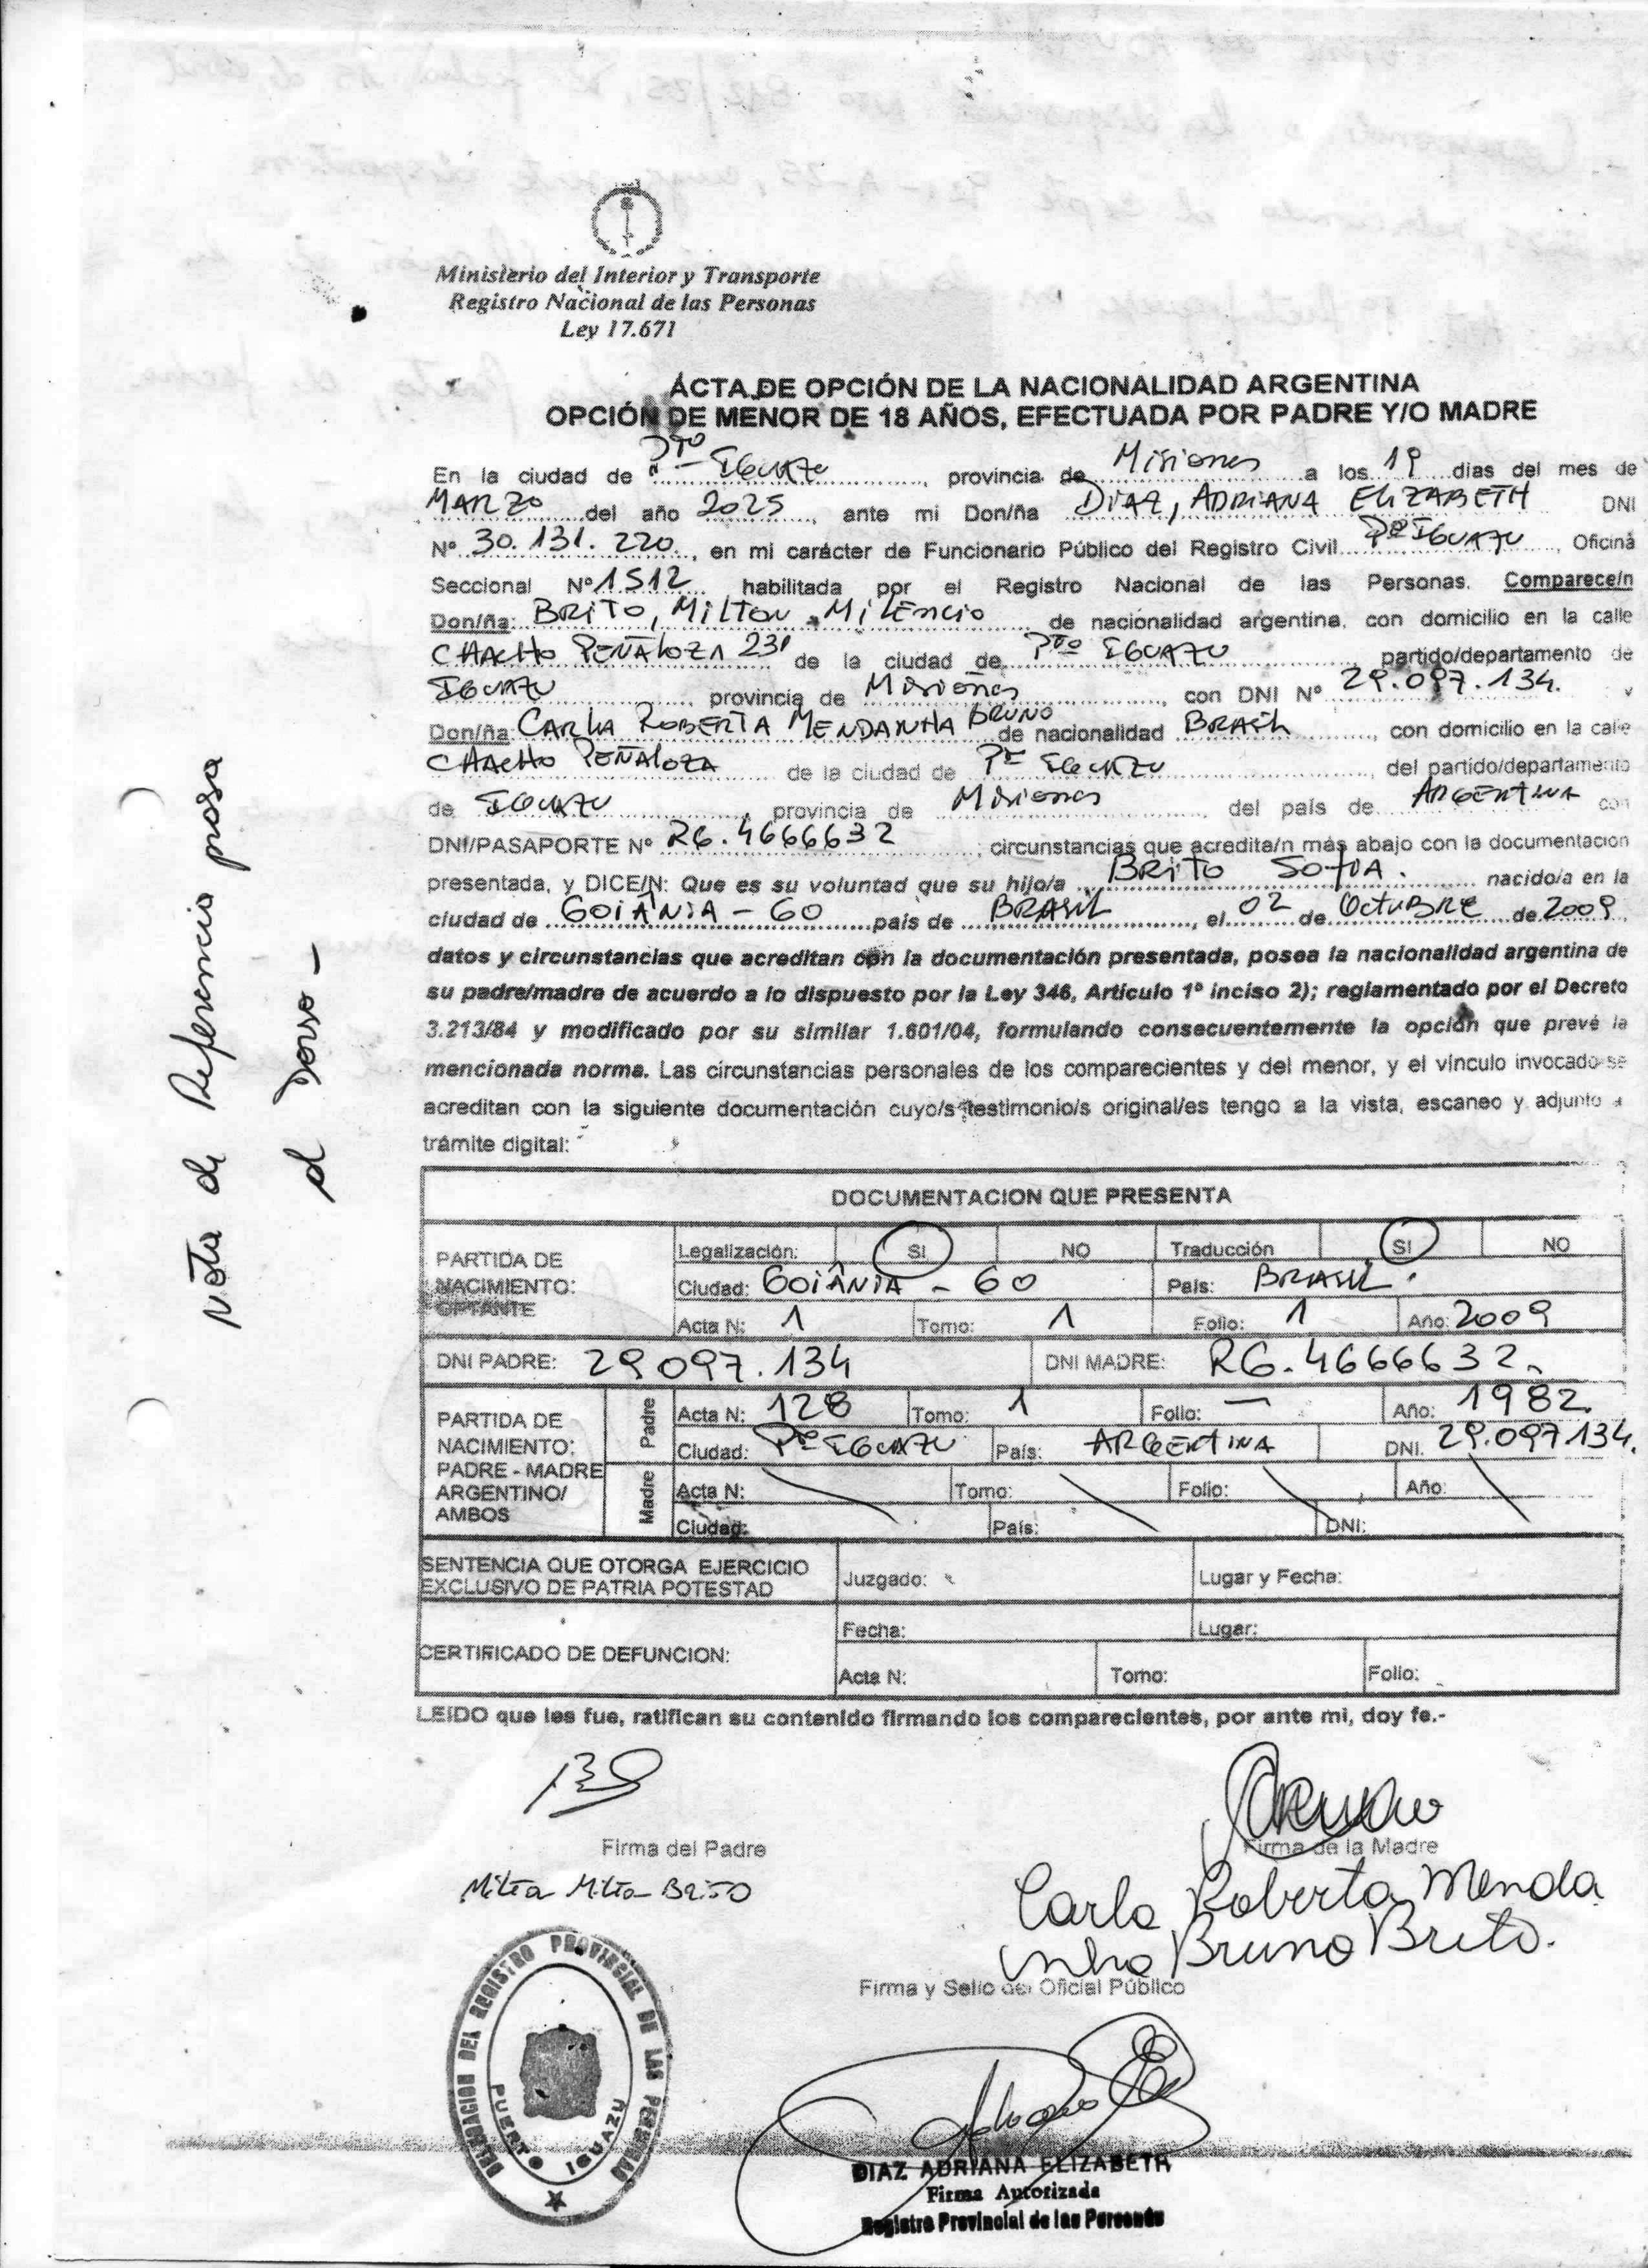 Ministerio del Interior y Transporte
Registro Nacional de las Personas
Ley 17.671
ACTA DE OPCIÓN DE LA NACIONALIDAD ARGENTINA
OPCIÓN DE MENOR DE 18 AÑOS, EFECTUADA POR PADRE Y/O MADRE
En la ciudad de Pto Iguazu, provincia de Misiones a los 19 días del mes de
MARZO del año 2025, ante mi Don/ña DIAZ, ADRIANA ELIZABETH DNI
Nº 30.131.220, en mi carácter de Funcionario Público del Registro Civil Pto Iguazu, Oficina
Seccional Nº 1512 habilitada por el Registro Nacional de las Personas. Comparece/n
Don/ña: BRITO, MILTON MILENCIO de nacionalidad argentina, con domicilio en la calle
CHACHO PEÑALOZA 231 de la ciudad de Pto IGUAZU partido/departamento de
IGUAZU, provincia de Misiones, con DNI Nº 29.097.134. y
Don/ña: CARLA ROBERTA MENDANHA BRUNO de nacionalidad BRASIL, con domicilio en la calle
CHACHO PEÑALOZA de la ciudad de Pto IGUAZU, del partido/departamento
de IGUAZU provincia de Misiones del país de ARGENTINA con
DNI/PASAPORTE Nº RG.4666632, circunstancias que acredita/n más abajo con la documentación
presentada, y DICE/N: Que es su voluntad que su hijo/a BRITO SOFIA. nacido/a en la
ciudad de GOIÂNIA - GO país de BRASIL, el 02 de OCTUBRE de 2009,
datos y circunstancias que acreditan con la documentación presentada, posea la nacionalidad argentina de
su padre/madre de acuerdo a lo dispuesto por la Ley 346, Artículo 1º inciso 2); reglamentado por el Decreto
3.213/84 y modificado por su similar 1.601/04, formulando consecuentemente la opción que prevé la
mencionada norma. Las circunstancias personales de los comparecientes y del menor, y el vínculo invocado se
acreditan con la siguiente documentación cuyo/s testimonio/s original/es tengo a la vista, escaneo y adjunto a
trámite digital:
Nota de Referencia pasa
al Dorso -
DOCUMENTACION QUE PRESENTA
PARTIDA DE NACIMIENTO: OPTANTE
Legalización: SI NO Traducción SI NO
Ciudad: GOIÂNIA - GO País: BRASIL.
Acta N: 1 Tomo: 1 Folio: 1 Año: 2009
DNI PADRE: 29097.134 DNI MADRE: RG.4666632.
PARTIDA DE NACIMIENTO: PADRE - MADRE ARGENTINO/ AMBOS
Padre Acta N: 128 Tomo: 1 Folio: — Año: 1982
Ciudad: Pto IGUAZU País: ARGENTINA DNI. 29.097.134.
Madre Acta N: Tomo: Folio: Año:
Ciudad: País: DNI:
SENTENCIA QUE OTORGA EJERCICIO EXCLUSIVO DE PATRIA POTESTAD Juzgado: Lugar y Fecha:
CERTIFICADO DE DEFUNCION: Fecha: Lugar:
Acta N: Tomo: Folio:
LEIDO que les fue, ratifican su contenido firmando los comparecientes, por ante mi, doy fe.-
Firma del Padre
Firma de la Madre
Carla Roberta Menda
nha Bruno Brito.
Firma y Sello del Oficial Público
DELEGACION DEL REGISTRO PROVINCIAL DE LAS PERSONAS
PUERTO IGUAZU
DIAZ ADRIANA ELIZABETH
Firma Autorizada
Registro Provincial de las Personas